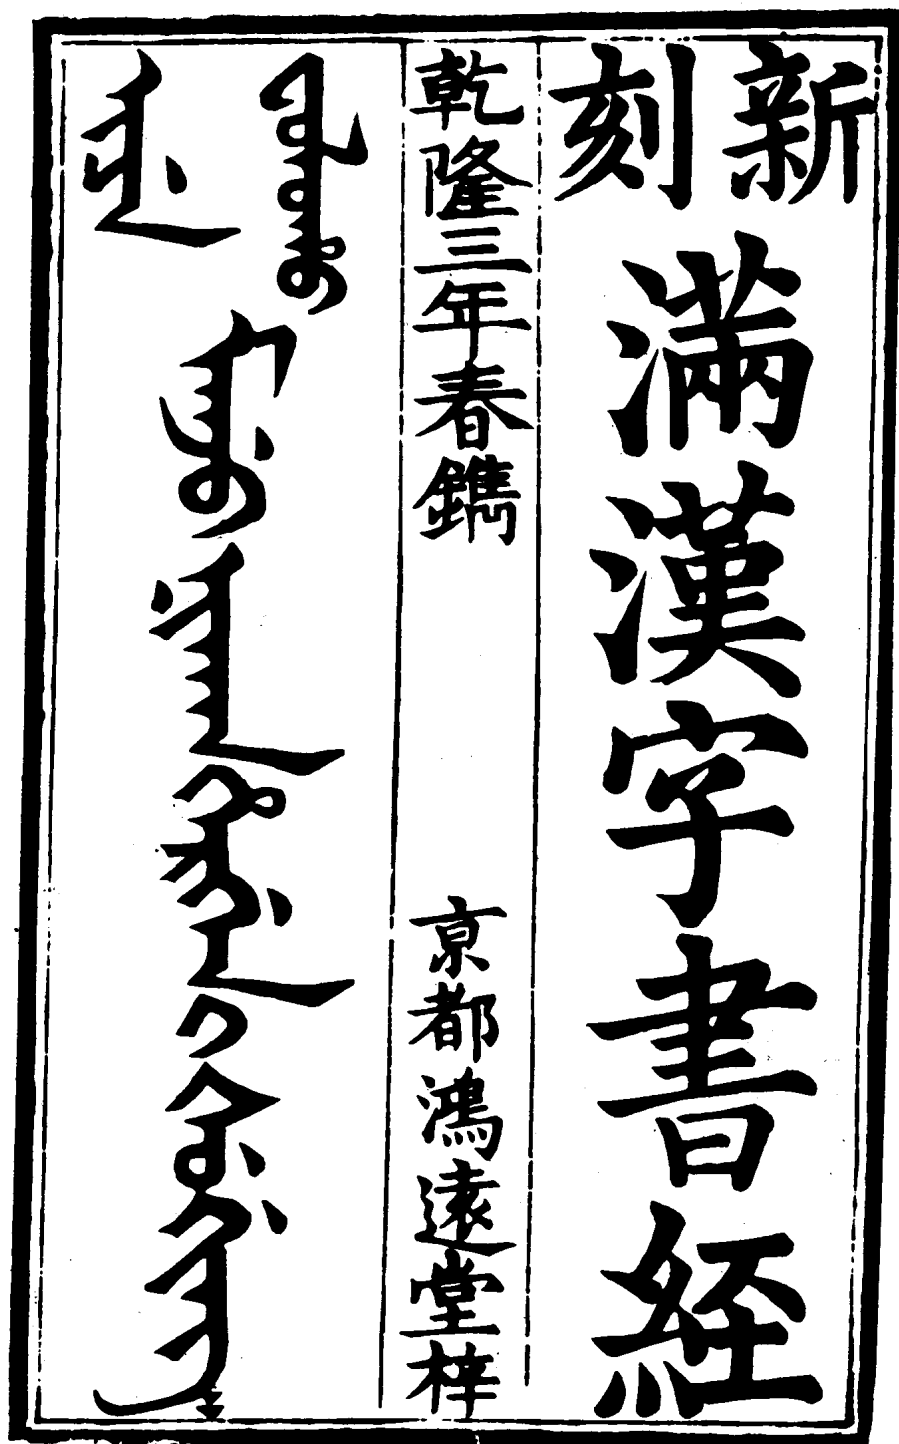 新刻
滿漢字書經
乾隆三年春鐫
京都鴻遠堂梓
ᡳᠴᡝ
ᠮᠠᠨᠵᡠ ᠨᡳᡴᠠᠨ ᡥᡝᡵᡤᡝᠨ ᡳ ᡧᡠ ᡤᡳᠩ